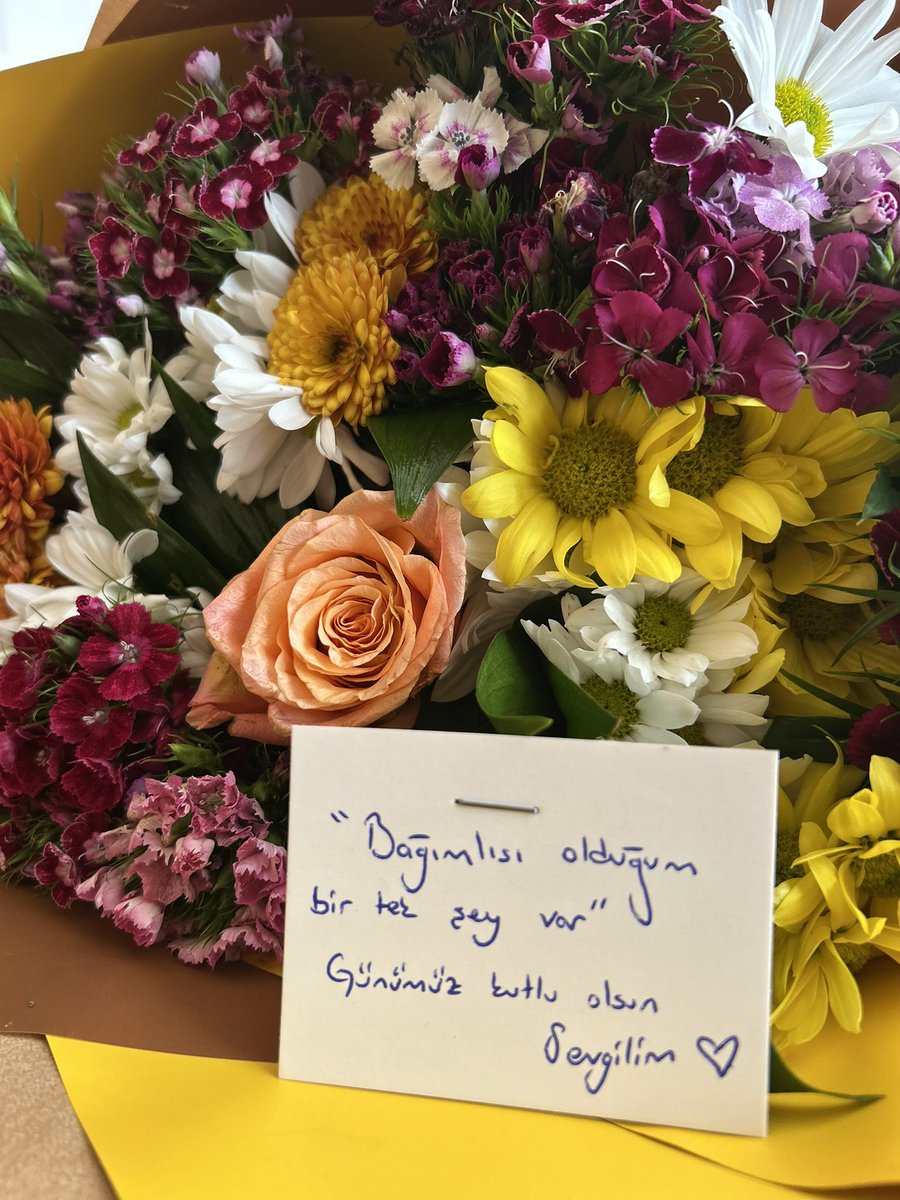 "Bağımlısı olduğum
bir tek şey var"
Günümüz kutlu olsun
Sevgilim ♡